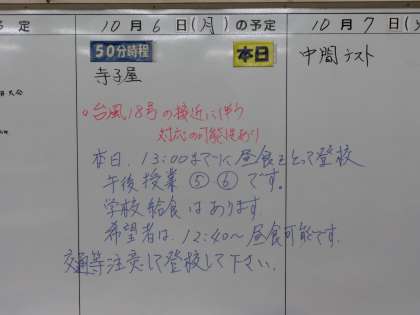 予定
10月6日(月)の予定
10月7日(火
50分時程
本日
中間テスト
寺子屋
○台風18号の接近に伴う
対応の可能性あり
本日、13:00までに昼食をとって登校
午後授業 ⑤ ⑥ です。
学校給食はあります
希望者は、12:40〜昼食可能です。
交通等注意して登校して下さい。